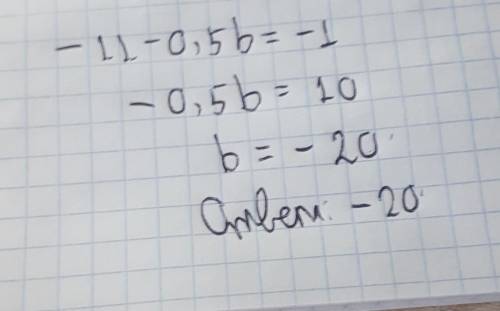 -11-0,5b=-1
-0,5b=10
b=-20
Ответ: -20